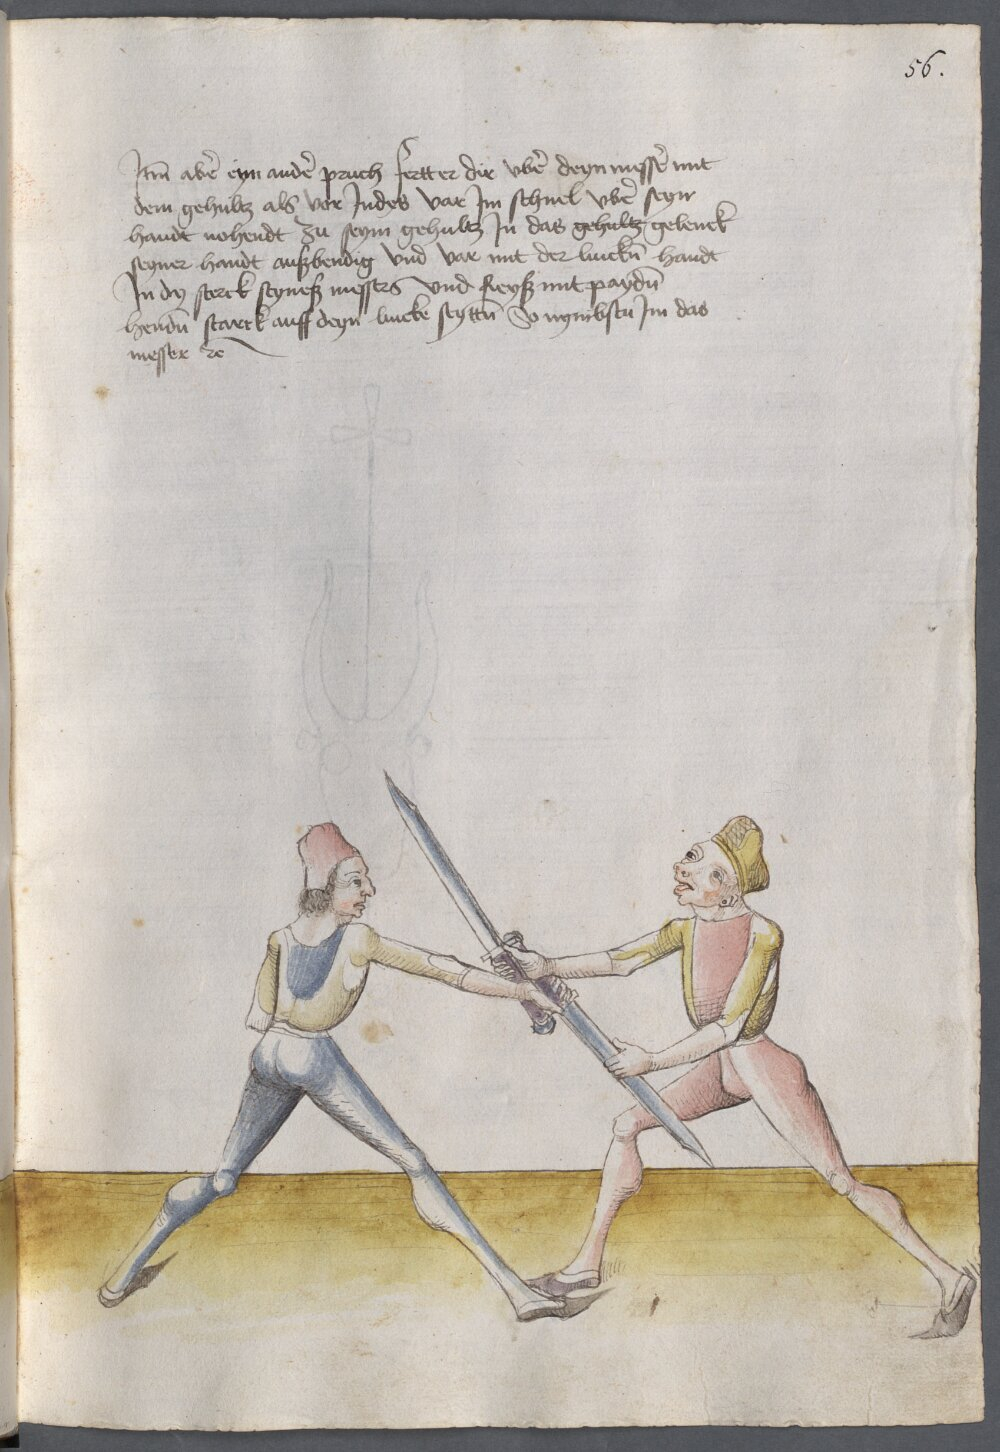 56.
Itm̄ abeʳ eyn andeʳ pruch fertt er dir vbeʳ deyn messeʳ mit
dem gehultz als vor Indes var Im schnel vbeʳ seyn
handt nohendt zu seym gehultz In das gehultz gelenck
seyner handt außbendig vnd var mit der lincken̄ handt
In dy sterck seyneß messers vnd Reyß mit paydn̄
hendn̄ starck auff deyn lincke seyttn̄ So nymbstu Im das
messer ⁊c